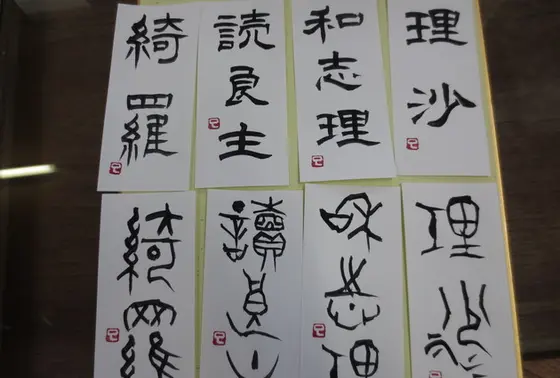 理沙
和志理
読良主
綺羅
理沙
和志理
讀良
綺羅